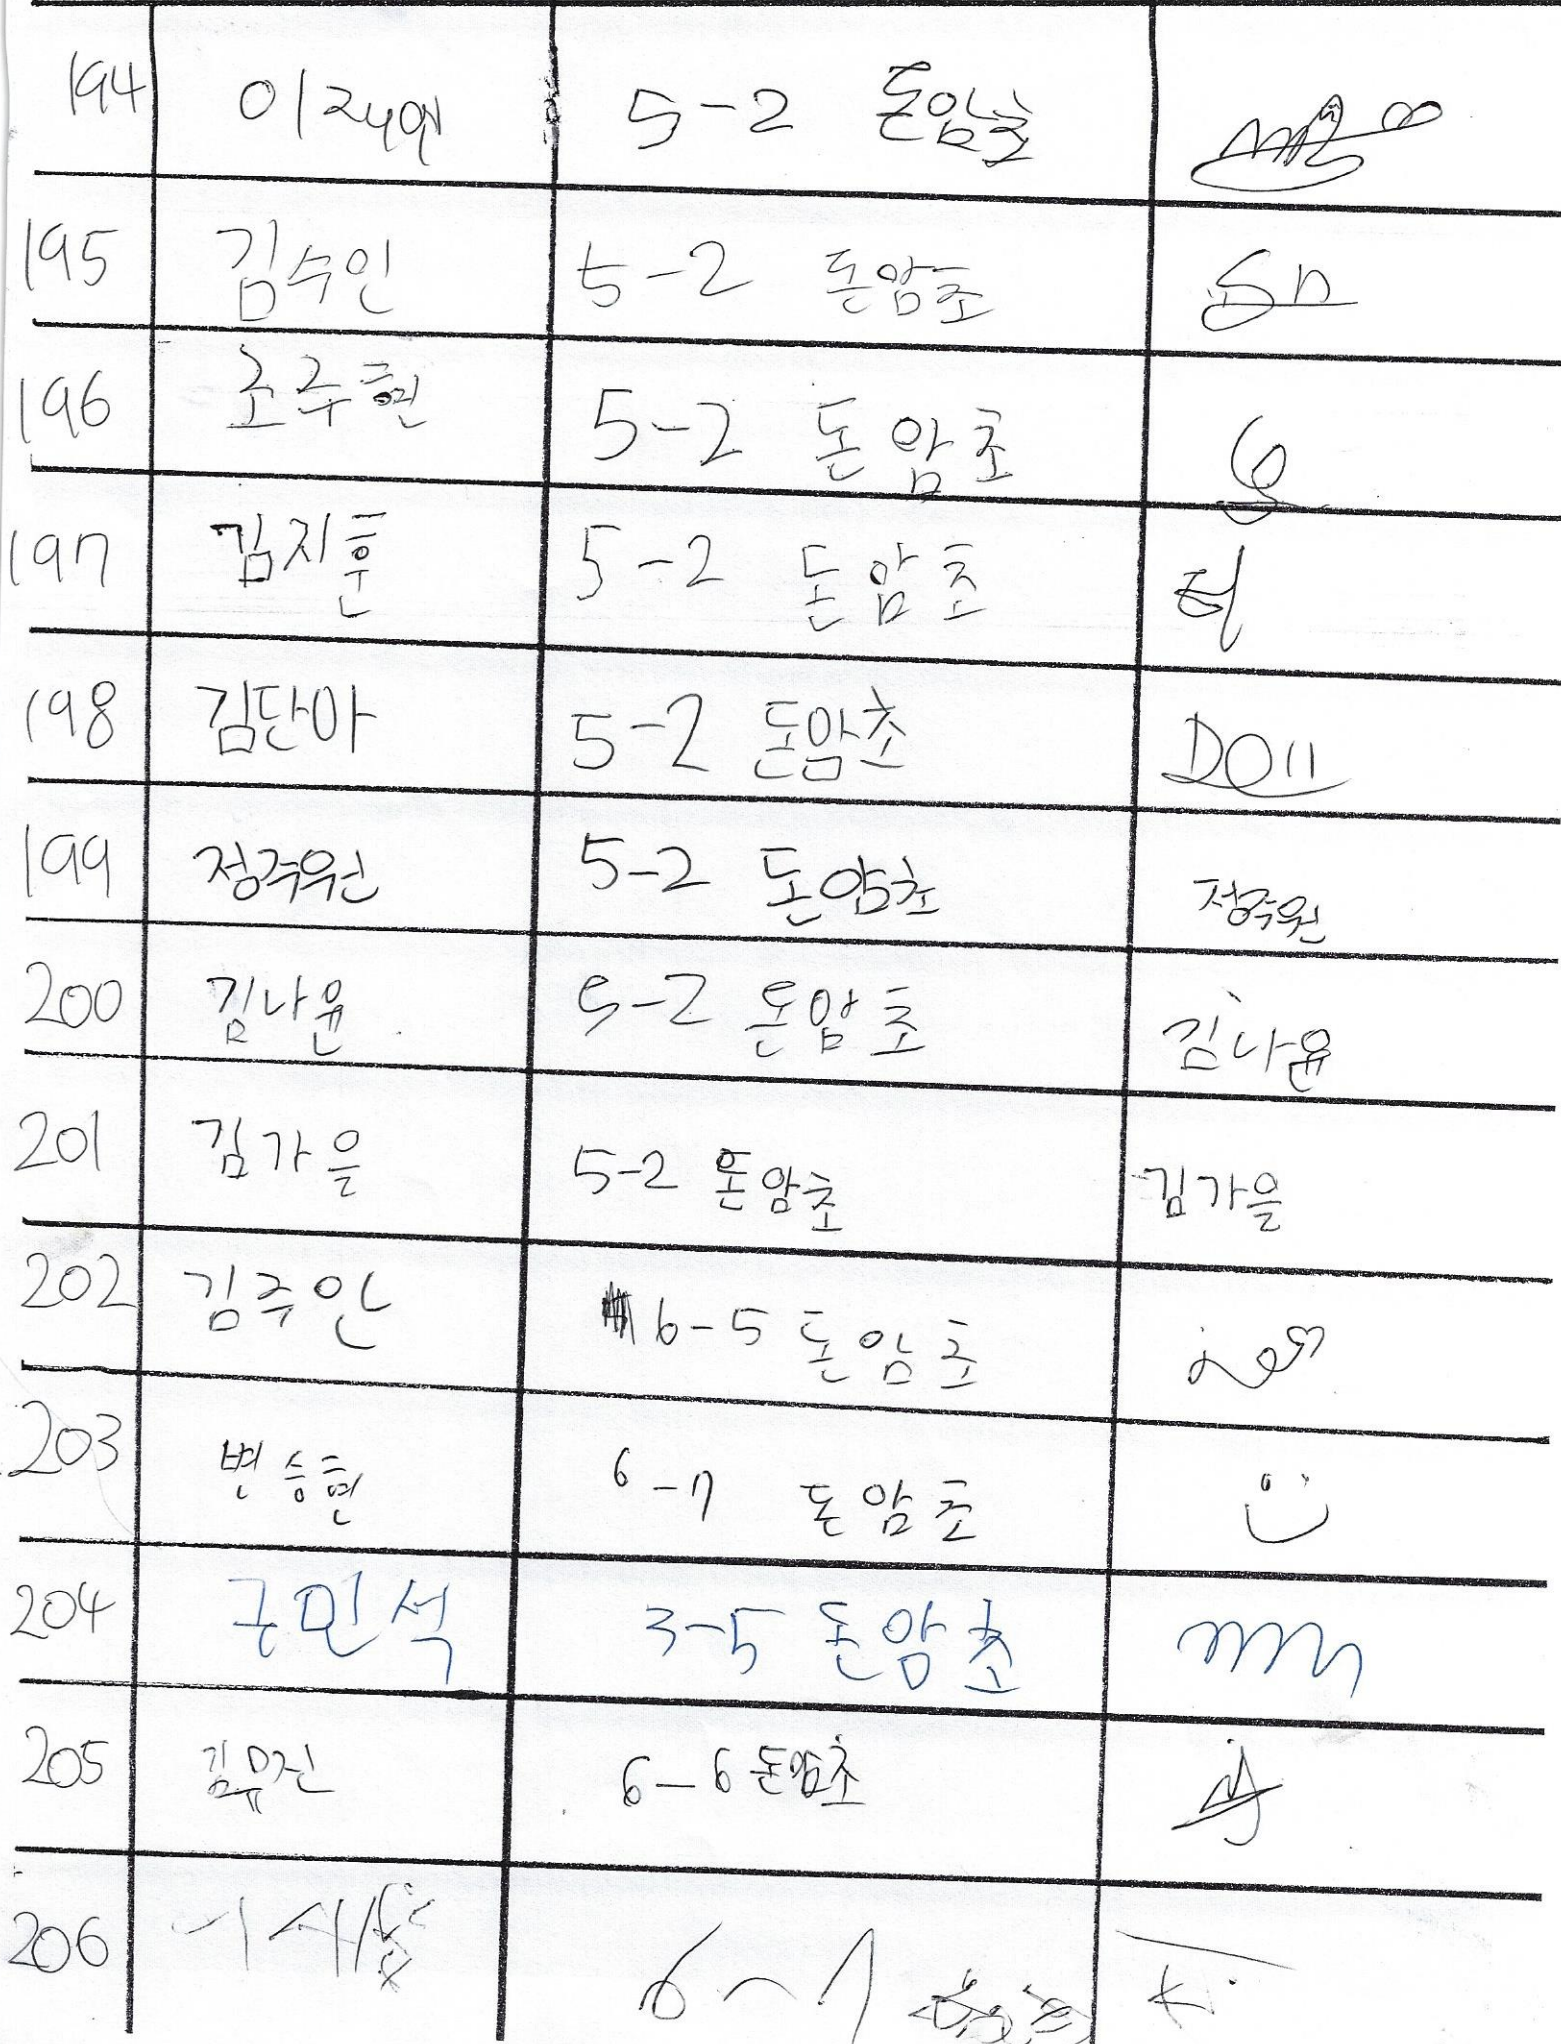 194 이재예 5-2 돈암초
195 김수인 5-2 돈암초 Sn
196 조주현 5-2 돈암초
197 김지훈 5-2 돈암초
198 김단아 5-2 돈암초
199 정주원 5-2 돈암초 정주원
200 김나윤 5-2 돈암초 김나윤
201 김가을 5-2 돈암초 김가을
202 김주안 6-5 돈암초
203 변승현 6-7 돈암초
204 구민석 3-5 돈암초
205 김무진 6-6 돈암초
206 6-7